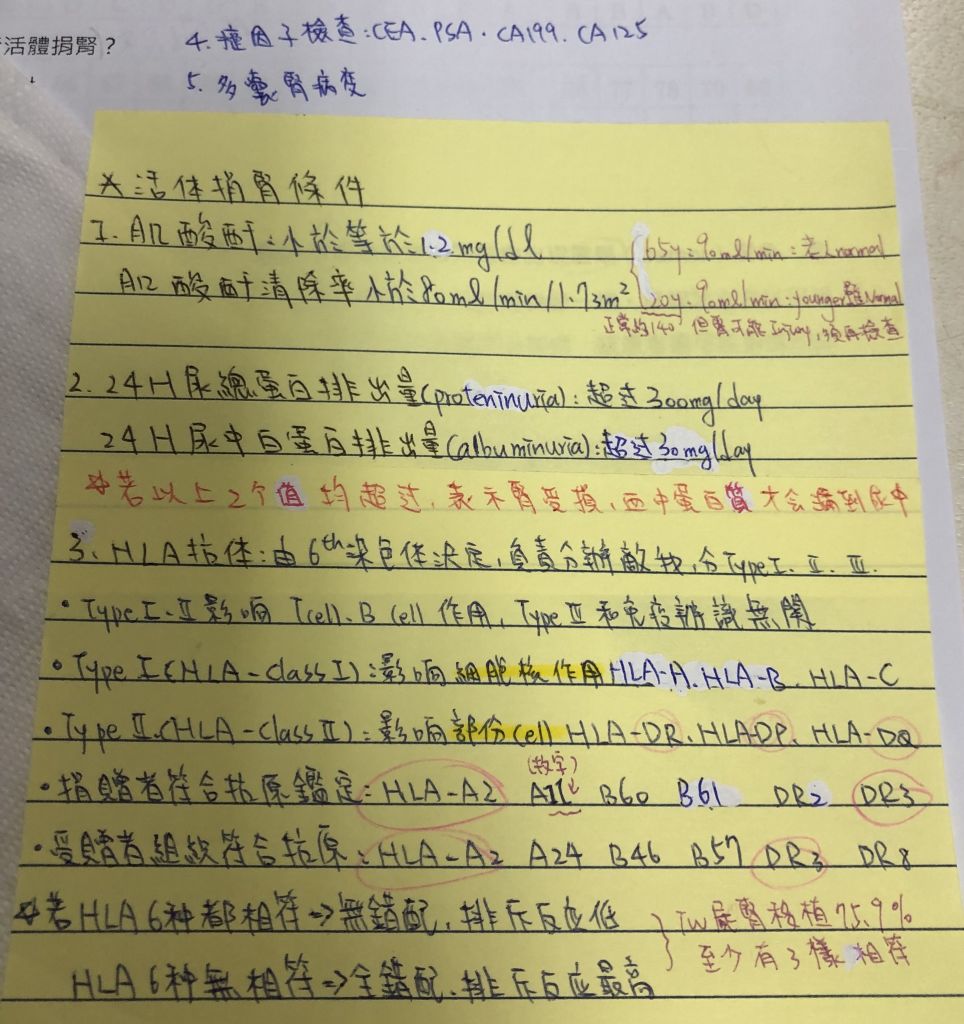 活體捐腎？
4. 癌因子檢查：CEA、PSA、CA199、CA125
5. 多囊腎病变
☆活体捐腎條件
1. 肌酸酐：小於等於1.2mg/dl
肌酸酐清除率小於80ml/min/1.73m²
65y：90ml/min：老人normal
20y：90ml/min：younger雖Normal
正常約140 但腎可能Injury，須再檢查
2. 24H尿總蛋白排出量(proteninuria)：超过300mg/day
24H尿中白蛋白排出量(albuminuria)：超过30mg/day
☆若以上2个值均超过，表示腎受損，血中蛋白質才会漏到尿中
3. HLA抗体：由6th染色体決定，負責分辦敵我，分Type I、II、III.
·Type I、II影响Tcell、B cell作用，Type III和免疫辨識無關
·Type I(HLA-class I)：影响細胞核作用HLA-A、HLA-B、HLA-C
·Type II(HLA-class II)：影响部份cell HLA-DR、HLA-DP、HLA-DQ
(数字)
·捐贈者符合抗原鑑定：HLA-A2 A11 B60 B61 DR2 DR3
·受贈者組織符合抗原：HLA-A2 A24 B46 B57 DR3 DR8
☆若HLA 6种都相符→無錯配，排斥反应低
HLA 6种無相符→全錯配，排斥反应最高
TW屍腎移植75.9%
至少有3樣相符